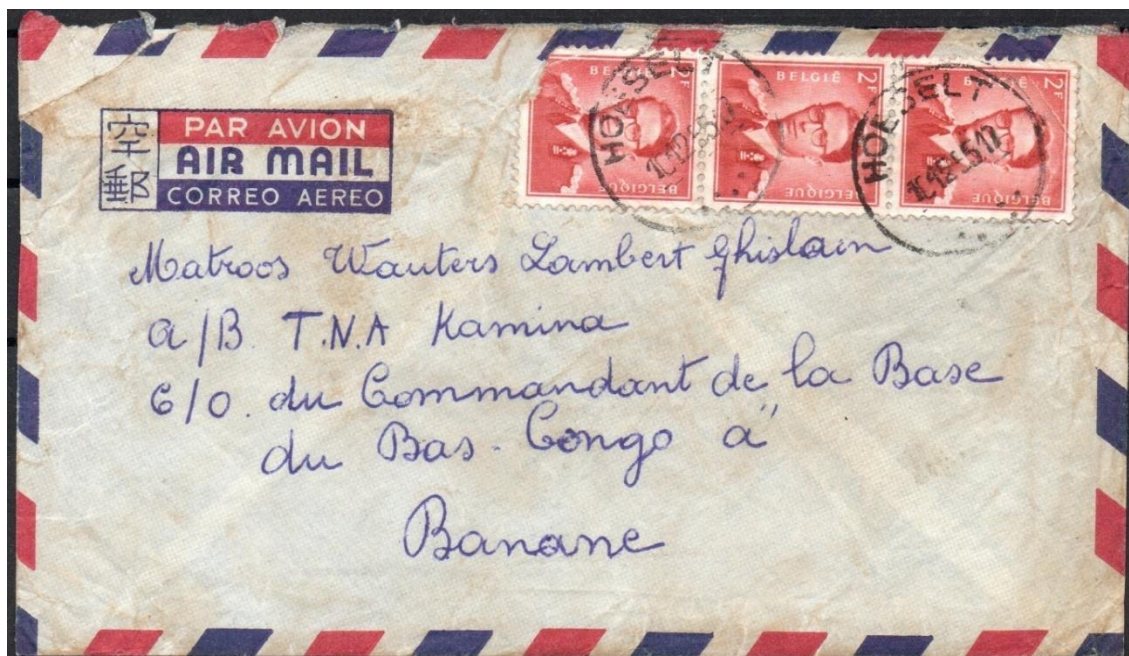 空郵
PAR AVION
AIR MAIL
CORREO AEREO
BELGIË 2F
BELGIQUE
BELGIË 2F
BELGIQUE
BELGIË 2F
BELGIQUE
HOESELT
HOESELT
Matroos Wauters Lambert Ghislain
a/B. T.N.A Kamina
C/O. du Commandant de la Base
du Bas-Congo à
Banane